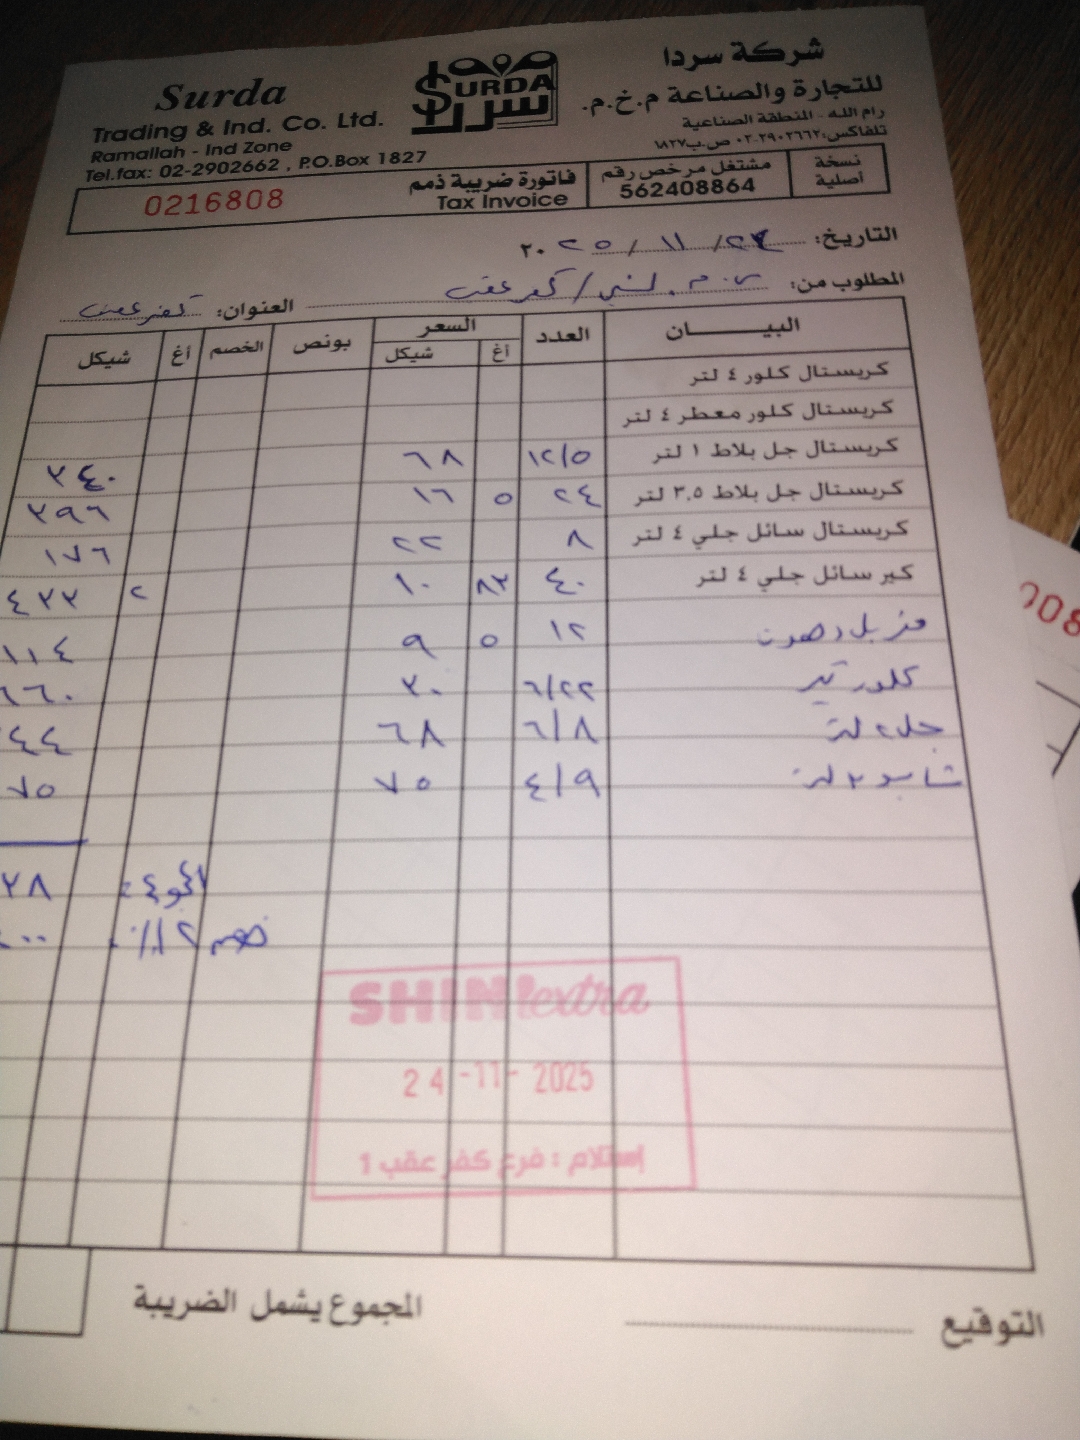 Surda
Trading & Ind. Co. Ltd.
Ramallah - Ind Zone
Tel.fax: 02-2902662 , P.O.Box 1827
SURDA
سردا
شركة سردا
للتجارة والصناعة م.خ.م.
رام الله - المنطقة الصناعية
تلفاكس: ٠٢-٢٩٠٢٦٦٢ ص.ب ١٨٢٧
نسخة أصلية
مشتغل مرخص رقم 562408864
فاتورة ضريبة ذمم Tax Invoice
0216808
التاريخ: ٢٤/ ١١ / ٢٠٢٥
المطلوب من: / كفر عقب العنوان: كفر عقب
البيـــــــان العدد السعر أغ شيكل بونص الخصم أغ شيكل
كريستال كلور ٤ لتر
كريستال كلور معطر ٤ لتر
كريستال جل بلاط ١ لتر ١٢/٥ ٦٨ ٣٤٠
كريستال جل بلاط ٣.٥ لتر ٢٤ ٥ ١٦ ٣٩٦
كريستال سائل جلي ٤ لتر ٨ ٢٢ ١٧٦
كير سائل جلي ٤ لتر ٤٠ ٨٣ ١٠ ٢ ٤٣٣
مزيل دهون ١٢ ٥ ٩ ١١٤
كلور كير ٦/٢٢ ٣٠ ٦٦٠
جل ٢ لتر ٦/٨ ٦٨ ٤٤
شامبو ٣ لتر ٤/٩ ٧٥ ٧٥
المجموع: ٢٨
خصم ١٢٪ ٠٠
SHINI extra
24 -11- 2025
إستلام : فرع كفر عقب 1
المجموع يشمل الضريبة
التوقيع
008